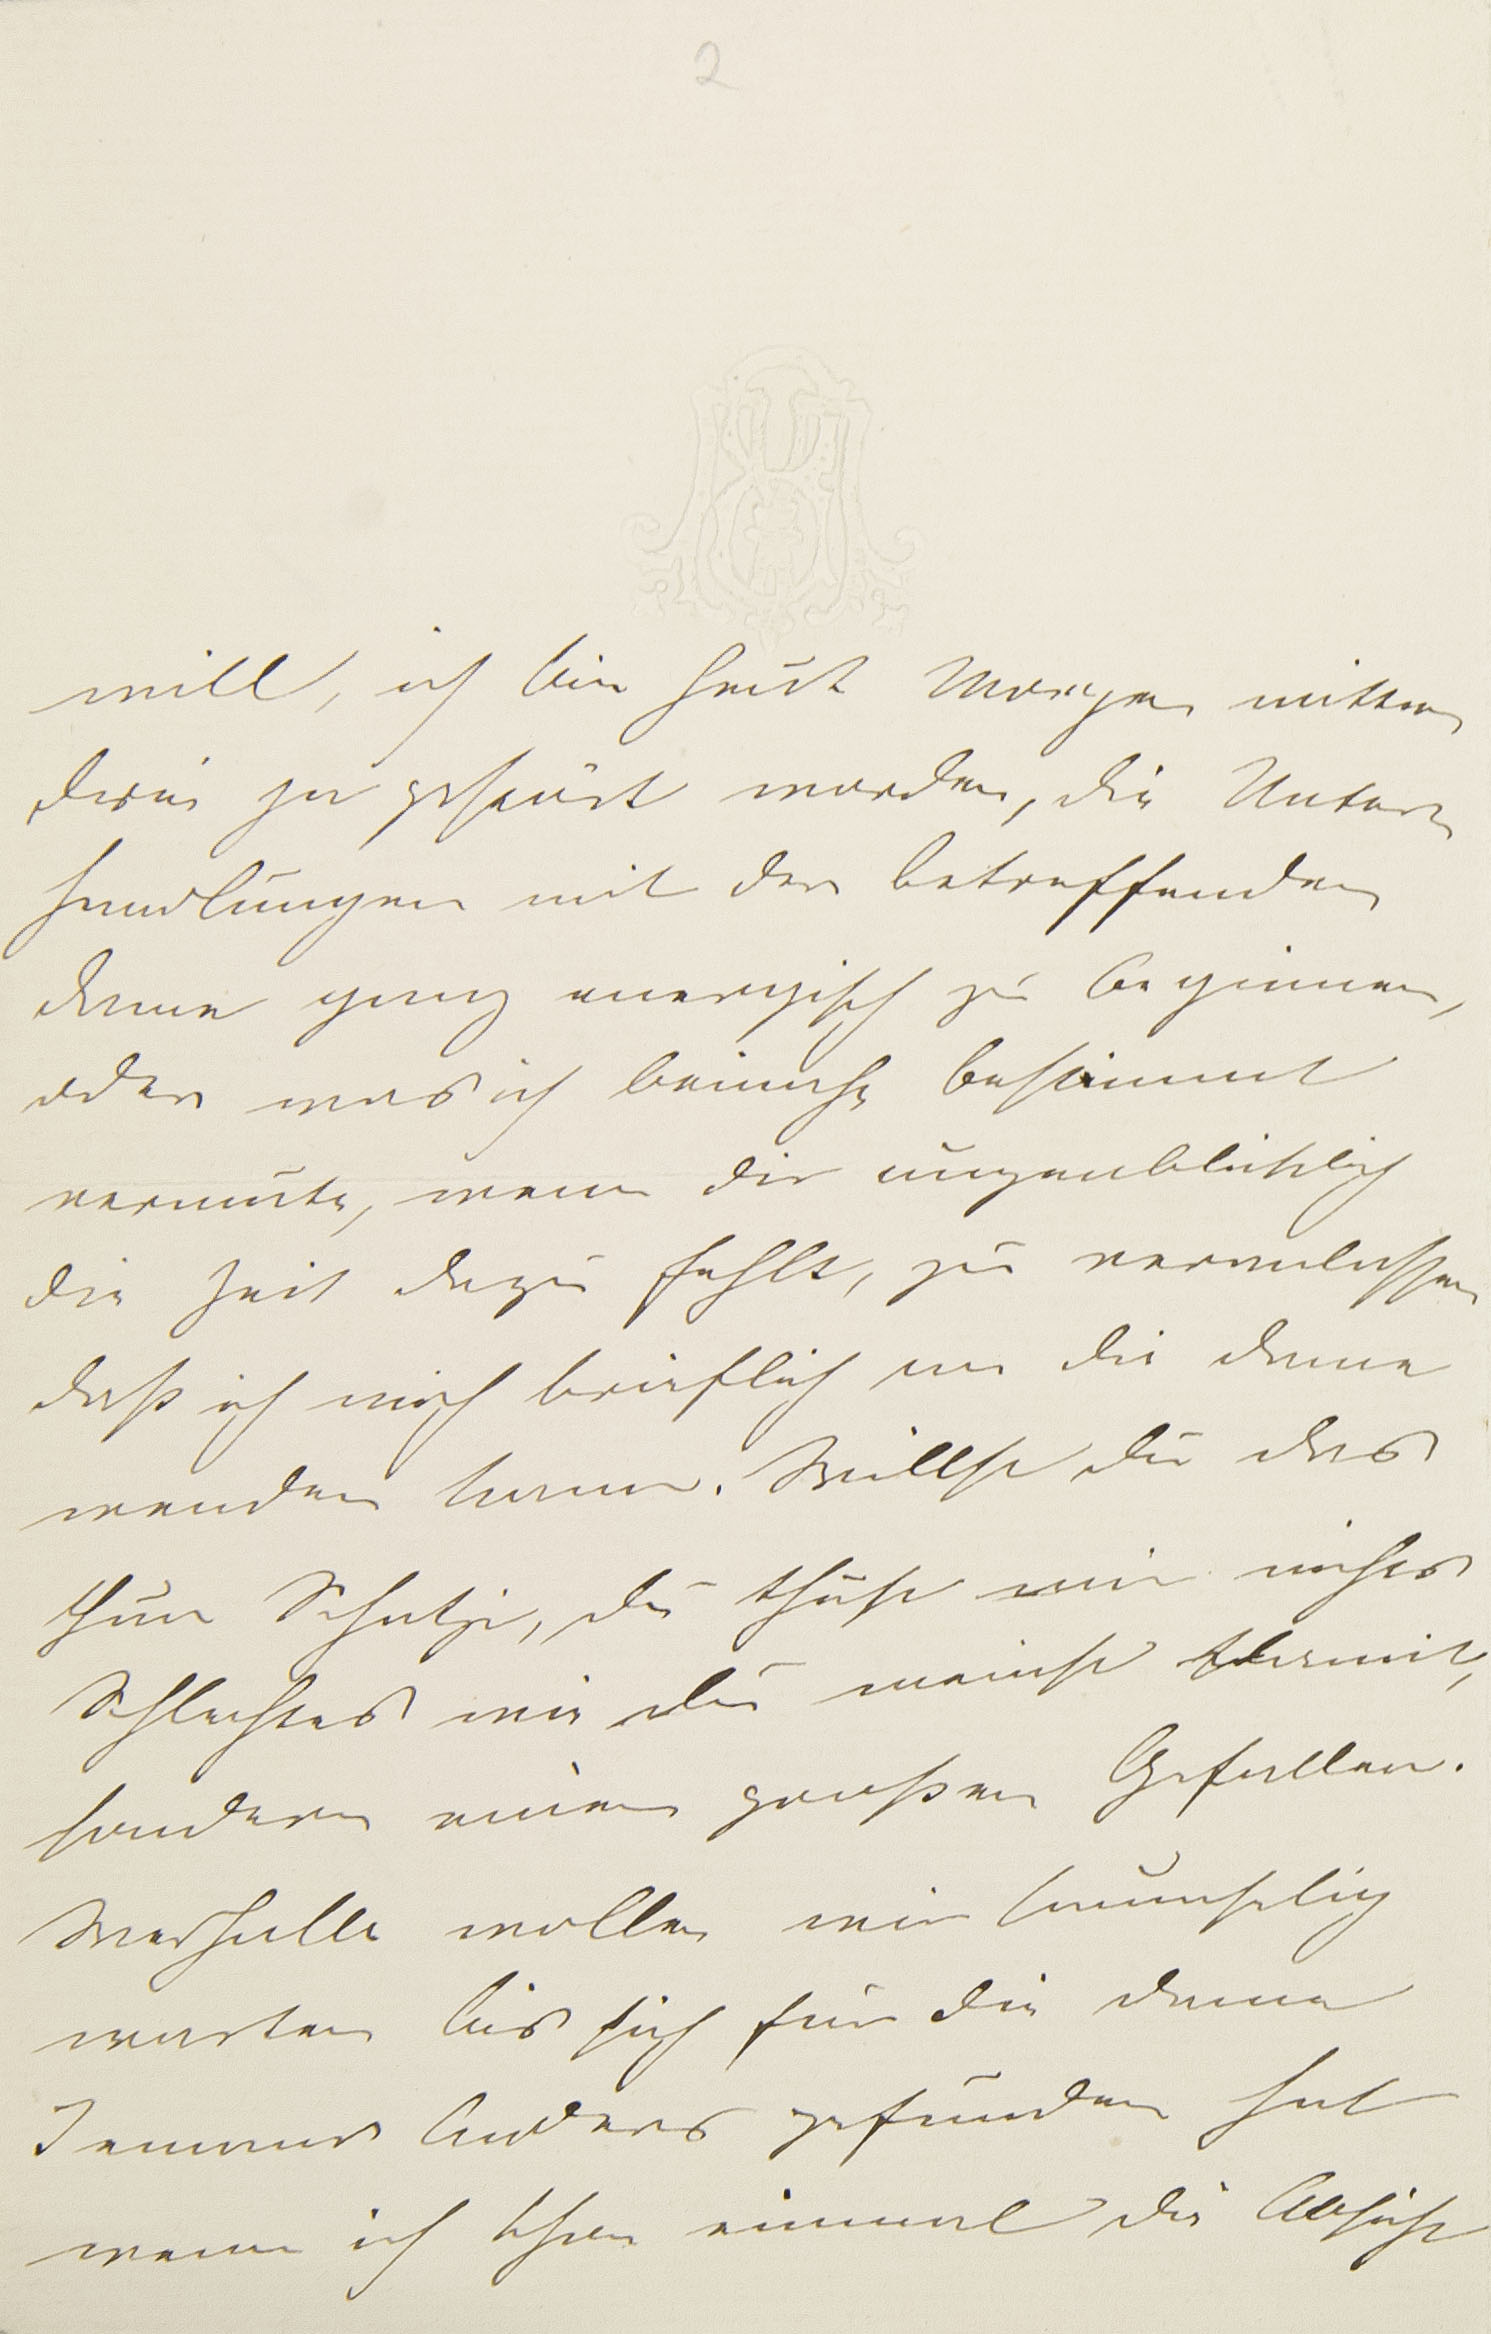 2
will, ich bin heut Morgen mitten
drin zu gestört worden, die Unter
handlungen mit der betreffenden
Dame ganz energisch zu beginnen,
oder was ich beinahe bestimmt
vermute, wenn dir augenblicklich
die Zeit dazu fehlt, zu veranlassen
daß ich mich brieflich an die Dame
wenden kann. Willst du das
thun Schatzi, du thust mir nichts
Schlechtes wie du meinst damit,
sondern einen großen Gefallen.
Weshalb wollen wir
warten bis sich für die Dame
Jemand Anders gefunden hat
wenn ich schon einmal die Absicht